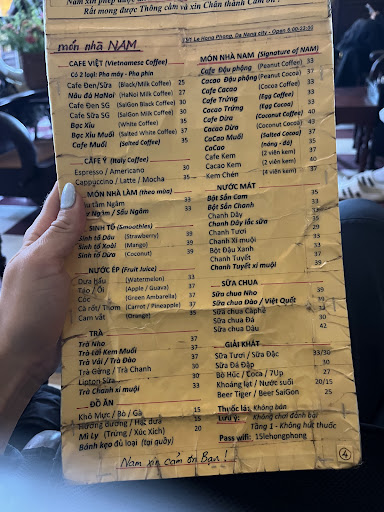 Rất mong được Thông cảm và xin Chân thành Cảm ơn !
món nhà NAM
Le Hong Phong, Da Nang city - Open 6:00-22:30
CAFE VIỆT (Vietnamese Coffee)
Có 2 loại: Pha máy - Pha phin
Cafe Đen/Sữa (Black/Milk Coffee) 25
Nâu đá HaNoi (HaNoi Milk Coffee) 27
Cafe Đen SG (SaiGon Black Coffee) 30
Cafe Sữa SG (SaiGon Milk Coffee) 30
Bạc Xỉu (White Coffee) 35
Bạc Xỉu Muối (Salted White Coffee) 37
Cafe Muối (Salted Coffee) 35
CAFE Ý (Italy Coffee)
Espresso / Americano 30
Cappuccino / Latte / Mocha 35
MÓN NHÀ LÀM (theo mùa)
Ngâm 33
Ngâm / Sấu Ngâm 33
SINH TỐ (Smoothies)
Sinh tố Dâu (Strawberry) 39
Sinh tố Xoài (Mango) 39
Sinh tố Dừa (Coconut) 39
NƯỚC ÉP (Fruit Juice)
Dưa hấu (Watermelon) 33
Táo / Ổi (Apple / Guava) 37
Cóc (Green Ambarella) 37
Cà rốt / Thơm (Carrot / Pineapple) 37
Cam vắt (Orange) 35
TRÀ
Trà Nho 37
Trà tắc Kem Muối 37
Trà Vải / Trà Đào 37
Trà Gừng / Trà Chanh 30
Lipton Sữa 30
Trà Chanh xí muội 33
ĐỒ ĂN
Khô Mực / Bò / Gà 15
Hướng dương / Hạt dưa 10
Mì Ly (Trứng / Xúc Xích) 20
Bánh kẹo đủ loại (tại quầy)
MÓN NHÀ NAM (Signature of NAM)
Cafe Đậu phộng (Peanut Coffee) 33
Cacao Đậu phộng (Peanut Cocoa) 37
Cafe Cacao (Cocoa Coffee) 37
Cafe Trứng (Egg Coffee) 33
Cacao Trứng (Egg Cocoa) 37
Cafe Dừa (Coconut Coffee) 40
Cacao Dừa (Coconut Cocoa) 43
CaCao Muối (Salted Cocoa) 37
CaCao (nóng - đá) 35
Cafe Kem (2 viên kem) 37
Cacao Kem (2 viên kem) 40
Kem Chén (4 viên kem) 37
NƯỚC MÁT
Bột Sắn Cam 35
Bột Sắn Chanh 33
Chanh Dây 33
Chanh Dây lắc sữa 35
Chanh Tươi 29
Chanh Xí muội 33
Bột Đậu Xanh 33
Chanh Tuyết 37
Chanh Tuyết xí muội 39
SỮA CHUA
Sữa chua Nho 39
Sữa chua Đào / Việt Quốt 39
Sữa chua Càphê 33
Sữa chua Đá 30
Sữa chua Dâu 42
GIẢI KHÁT
Sữa Tươi / Sữa Đặc 33/30
Sữa Đá Đập 30
Bò Húc / Coca / 7Up 27
Khoáng lạt / Nước suối 20/15
Beer Tiger / Beer SaiGon 25
Thuốc lá: Không bán
Lưu ý: Không chơi đánh bài
Tầng 1 - Không hút thuốc
Pass wifi: 15lehongphong
Nam xin cảm ơn Bạn !
4